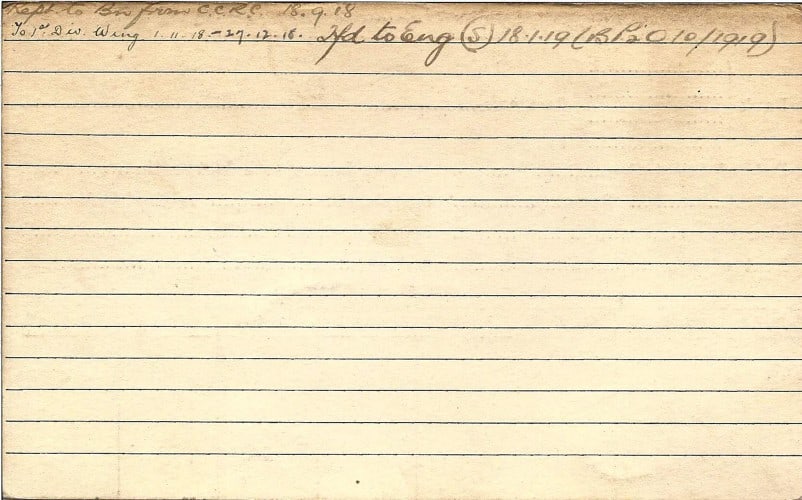 Rept to Bn from C.C.R.C. 18.9.18
To 1st Div. Wing 1.11.18-27.12.18. Tfd to Eng (S) 18.1.19 (B Pt 2 O 10/1919)